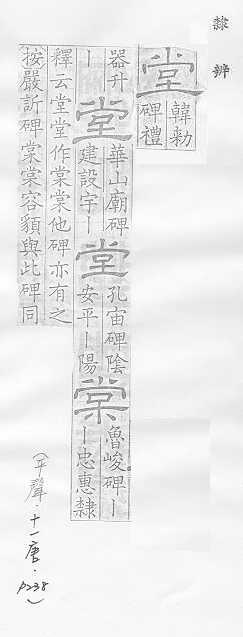 隸辨
堂韓勑
碑禮
器升堂華山廟碑
丨堂建設宇丨堂孔宙碑陰
安平丨陽棠魯峻碑丨
丨忠惠隸
釋云堂堂作棠棠他碑亦有之
按嚴訢碑棠棠容額與此碑同
(平聲·十一唐·p238)